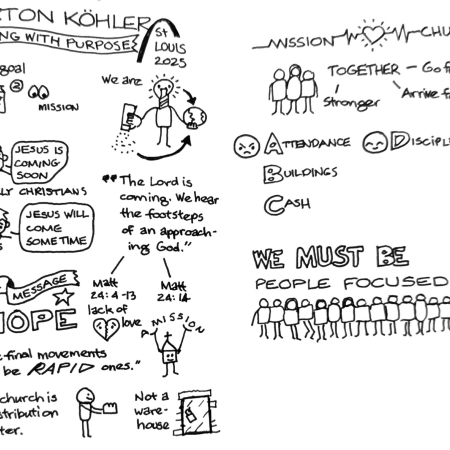 TON KÖHLER
NG WITH PURPOSE
St
LOUIS
2025
goal
②
MISSION
We are
JESUS IS
COMING
SOON
LY CHRISTIANS
JESUS WILL
COME
SOMETIME
"The Lord is
coming. We hear
the footsteps
of an approach-
ing God."
MESSAGE
HOPE
Matt
24:4-13
lack of
love
Matt
24:14
A MISSION
final movements
be RAPID ones."
church is
stribution
ter.
Not a
ware-
house
MISSION CHU
TOGETHER – Go f
Stronger
Arrive f
ATTENDANCE
BUILDINGS
CASH
DISCIPL
WE MUST BE
PEOPLE FOCUSED